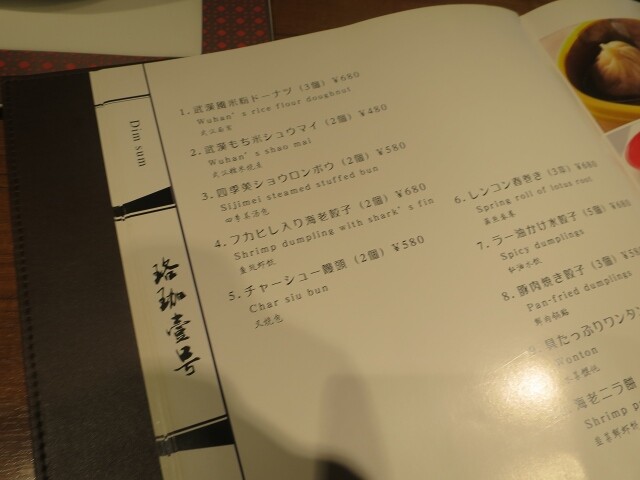 Dim sum
珞珈壹号
1. 武漢風米粉ドーナツ (3個) ¥680
Wuhan's rice flour doughnut
2. 武漢もち米シュウマイ (2個) ¥480
Wuhan's shao mai
3. 四季美ショウロンポウ (2個) ¥580
Sijimei steamed stuffed bun
四季美汤包
4. フカヒレ入り海老餃子 (2個) ¥680
Shrimp dumpling with shark's fin
鱼翅虾饺
5. チャーシュー饅頭 (2個) ¥580
Char siu bun
叉烧包
6. レンコン春巻き (3本) ¥680
Spring roll of lotus root
7. ラー油かけ水餃子 (5個) ¥680
Spicy dumplings
红油水饺
8. 豚肉焼き餃子 (3個) ¥58
Pan-fried dumplings
鲜肉锅贴
9. 貝たっぷりワンタン
Wonton
海老ニラ饅
Shrimp p
韭菜鲜虾饼